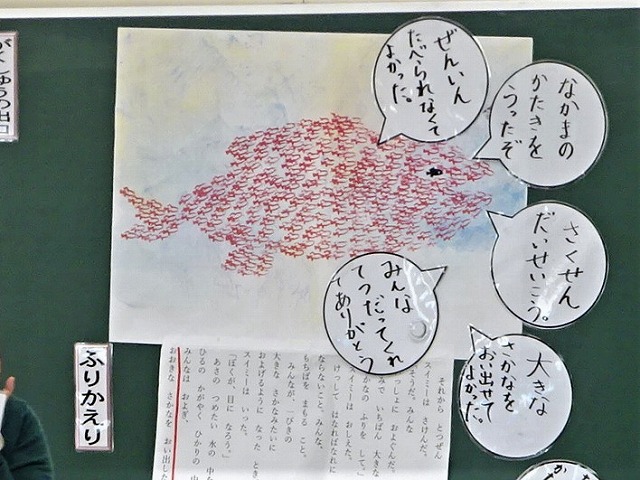 がくしゅうの出口
ぜんいん
たべられなくて
よかった。
なかまの
かたきを
うったぞ
さくせん
だいせいこう。
みんな
てつだってくれ
てありがとう
大きな
さかなを
おい出せて
よかった。
ふりかえり
それから とつぜん
スイミーは さけんだ。
みんな
っしょに およぐんだ。
いちばん 大きな
ふりを して。」
スイミーは おしえた。
けっして はなればなれに
ならないこと。みんな、
もちばを まもる こと。
みんなが、一ぴきの
大きな さかなみたいに
およげるように なった とき、
スイミーは いった。
「ぼくが、目に なろう。」
あさの つめたい 水の 中を
ひるの かがやく ひかりの 中
みんなは およぎ、
おおきな さかなを おい出した